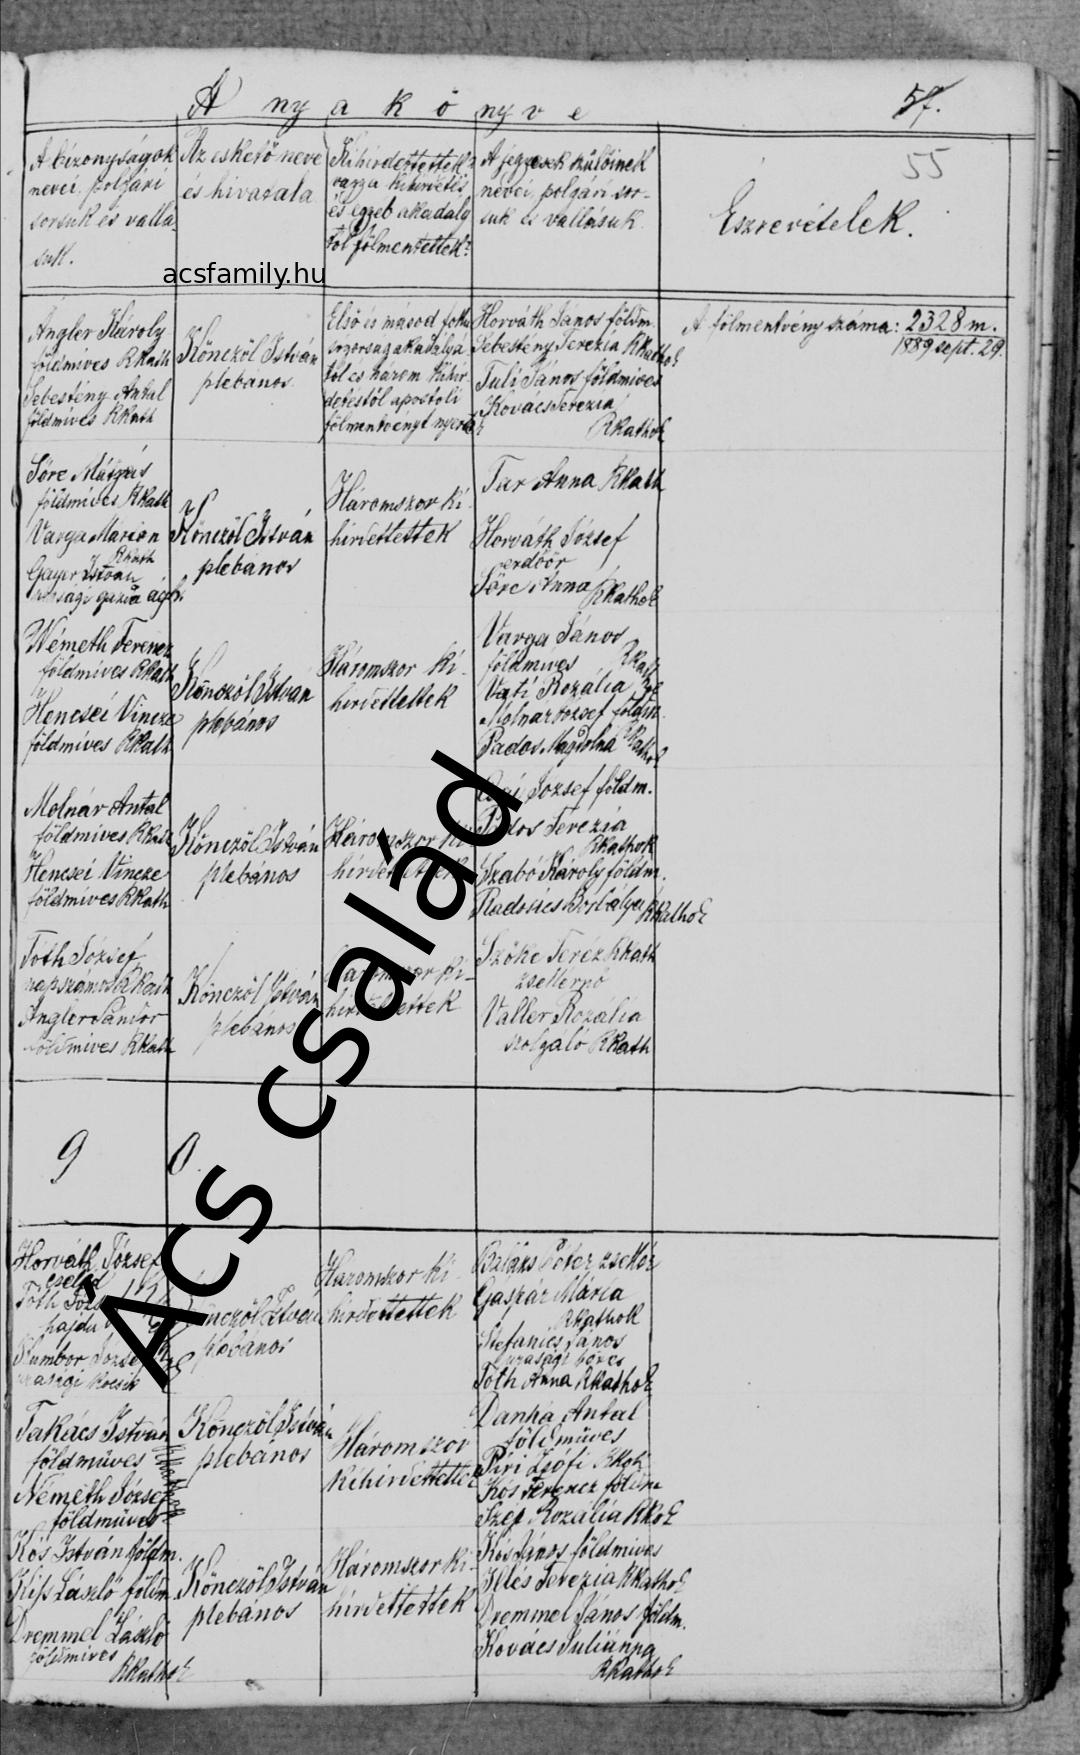 Anyakönyve
57.
55
A bizonyságok
nevei, polgári
sorsuk és vallá
suk.
Az eskető neve
és hivatala
Kihirdettettek
vagy a kihirdetés
és egyéb akadály
tól fölmentettek?
A jegyesek szülőinek
nevei, polgári sor-
suk és vallásuk
Eszrevételek.
acsfamily.hu
Angler Károly
földmives RKath
Sebestény Antal
földmives RKath
Könczöl István
plebános
Első és másod foku
sogorság akadálya
tól és három kihir
detéstől apostoli
fölmentvényt nyertek
Horváth János földm.
Sebestény Terezia RKathok
Tuli János földmives
Kovács Terezia
RKathok
A fölmentvény száma: 2328 m.
1889 sept. 29.
Söre Mátyás
földmives RKath
Varga Márton
RKath
István
Könczöl István
plebános
Háromszor ki
hirdettettek
Tar Anna RKath
Horváth József
erdőőr
Söre Anna RKathok
Németh Ferencz
földmives RKath
Hencsei Vincze
földmives RKath
Könczöl István
plebános
Háromszor ki-
hirdettettek
Varga János
földmives
Vati Rozália
Molnár József földm.
Pados Magdolna RKathok
Molnár Antal
földmives RKath
Hencsei Vincze
földmives RKath
Könczöl István
plebános
Háromszor ki
hirdettettek
József földm.
Pados Terezia
RKathok
Szabó Károly földm.
Radosics Borbálya RKathok
Tóth József
napszámos RKath
Angler Sandor
földmives RKath
Könczöl István
plebános
Háromszor ki-
hirdettettek
Szőke Teréz RKath
zsellernő
Valler Rozália
szolgáló RKath
Ács család
9 0.
Horváth József
cseléd
Tóth József
hajdu
Kumbor József
urasági kocsis
Könczöl István
plebános
Haromszor ki-
hirdettettek
Balázs Péter zsellér
Gaspár Mária
RKathok
Stefanics János
urasági béres
Tóth Anna RKathok
Takács István
földmüves
Németh József
földmüves
RKathok
Könczöl István
plebános
Háromszor
kihirdettettek
Danka Antal
földmüves
Piri Zsófi RKath
Kós Ferencz földm
Szép Rozália RKok
Kós István földm.
Kiss László földm
Dremmel László
földmives
RKathok
Könczöl István
plebános
Háromszor ki-
hirdettettek
Kós János földmives
Illés Terezia RKathok
Dremmel János földm.
Kovács Juliánna
RKathok